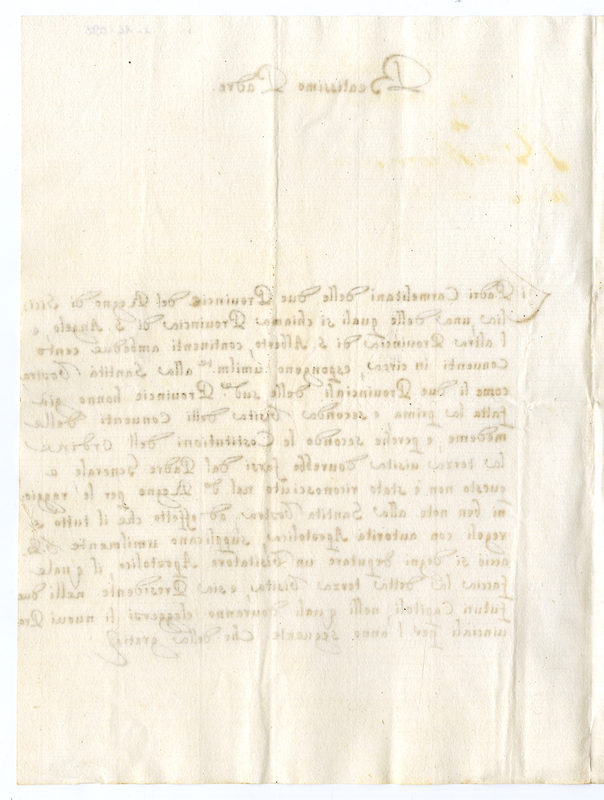 Beatissimo Padre
I Padri Carmelitani delle due Prouincie del Regno di Sici
lia una delle quali si chiama Prouincia di S. Angelo e
l'altra Prouincia di S. Alberto, continenti ambedue cento
Conuenti in circa, espongono humilm.te alla Santità Vostra
come li due Prouinciali delle sud.e Prouincie hanno già
fatta la prima e seconda Visita delli Conuenti delle
medeme, e perche secondo le Constitutioni dell' Ordine
la terza uisita dourebbe farsi dal Padre Generale e
questo non è stato riconosciuto nel d.o Regno per le raggio
ni ben note alla Santità Vostra, ad effetto che il tutto si
regoli con autorità Apostolica, supplicano umilmente
accio si degni deputare un Visitatore Apostolico il quale
faccia la detta terza Visita, e sia Presidente nelli due
futuri Capitoli, nelli quali douranno eleggersi li nuoui Pro
uinciali per l'anno seguente, che della gratia